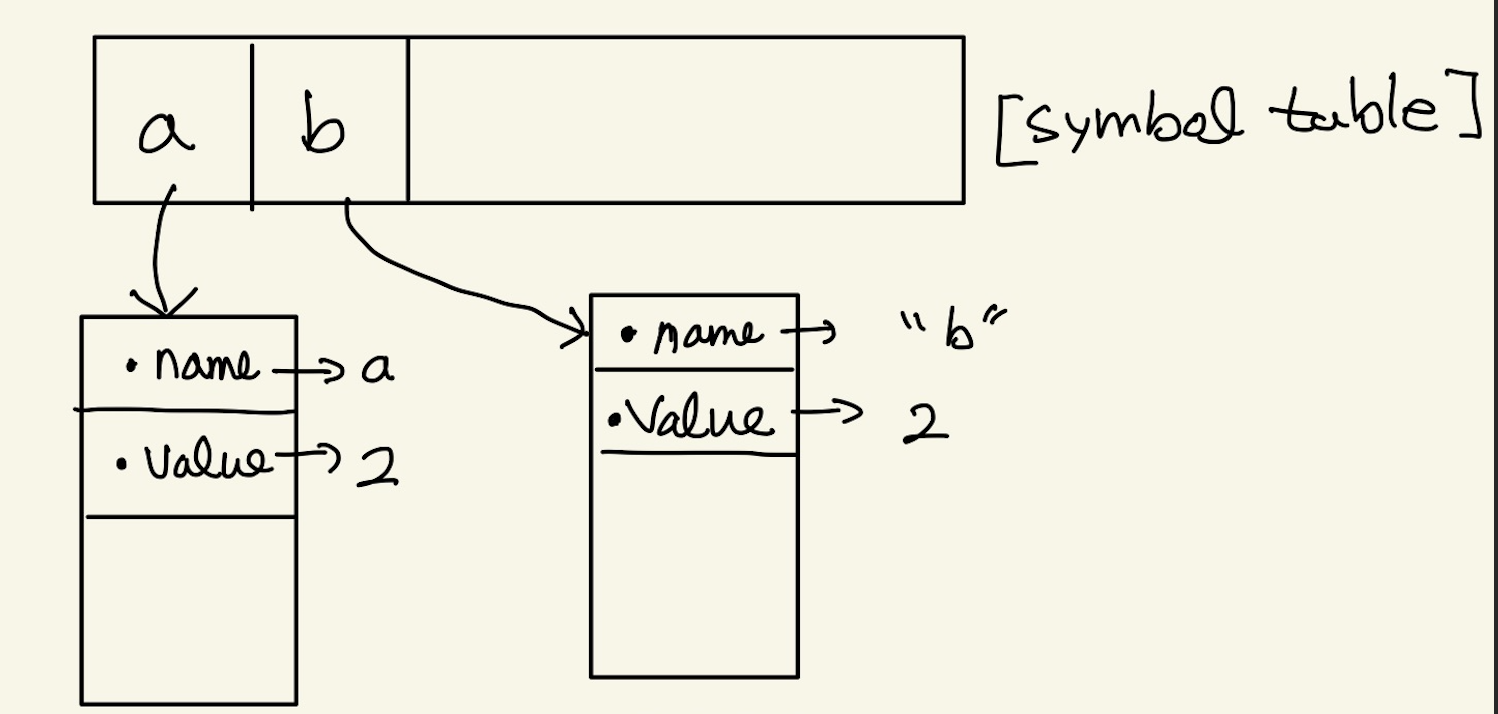 a b [symbol table]
• name → a
• value → 2
• name → "b"
• Value → 2